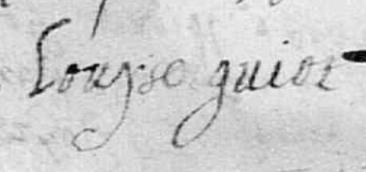 Louyse guiot